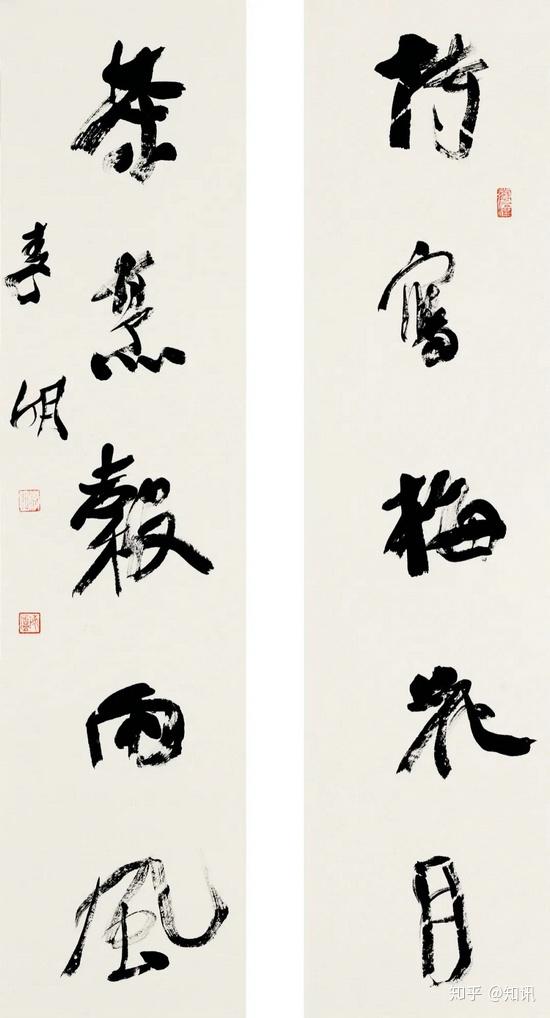 詩寫梅花月
茶煎穀雨風
明
知乎 @知讯